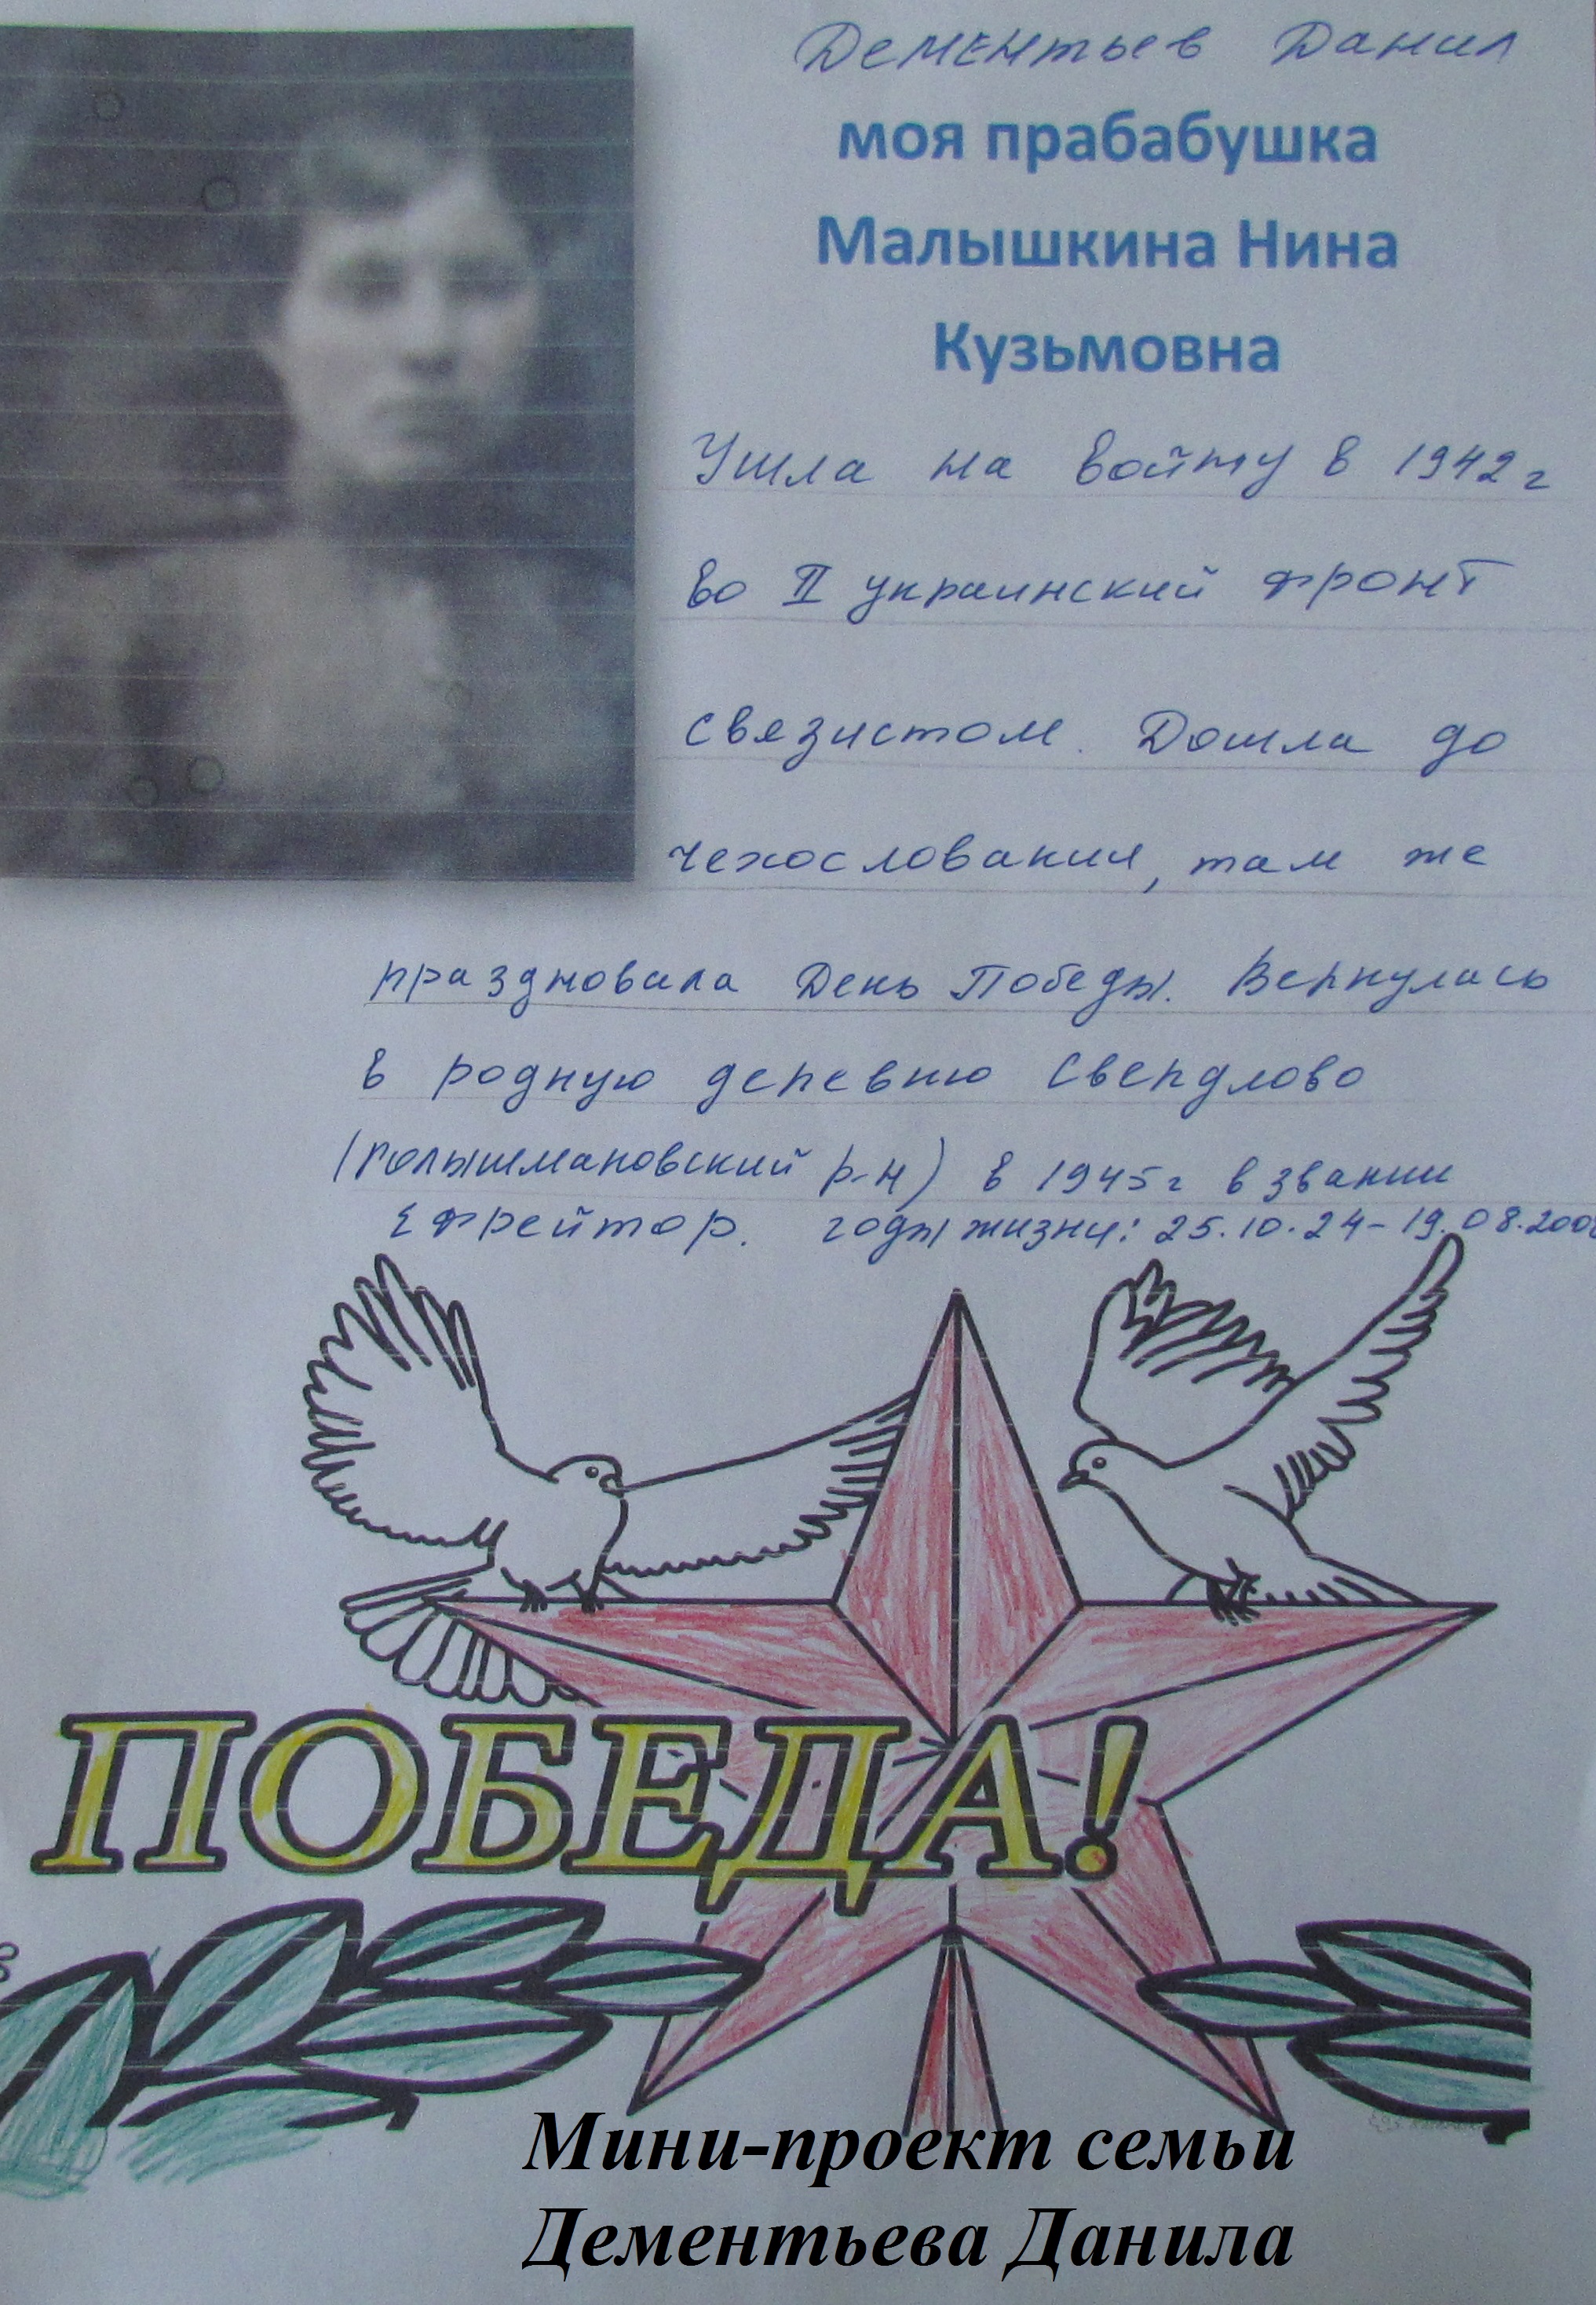 Дементьев Данил
моя прабабушка
Малышкина Нина
Кузьмовна
Ушла на войну в 1942 г
во II украинский фронт
связистом. Дошла до
чехословакии, там же
праздновала День Победы. Вернулась
в родную деревню Свердлово
(Голышмановский р-н) в 1945г в звании
Ефрейтор. годы жизни: 25.10.24 - 19.08.200
ПОБЕДА!
Мини-проект семьи
Дементьева Данила